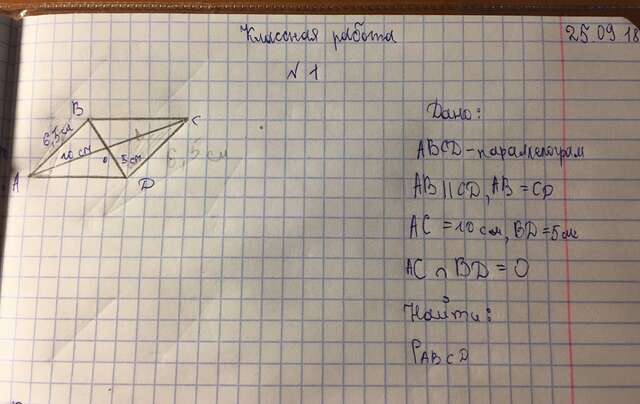 Классная работа
25.09.18
N 1
B
C
6,5 см
10 см
O
5 см
6,5 см
A
D
Дано:
ABCD - параллелограм
AB || CD, AB = CD
AC = 10 см, BD = 5 см
AC ∩ BD = O
Найти:
P ABCD